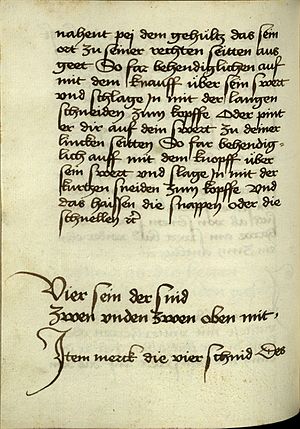 nahent pej dem gehültz das sein
ort zu seiner rechten seitten aus
geet So far behendiglichen auf
mit dem knauff über sein swert
vnd schlage In mit der langen
schneiden zum kopffe Oder pint
er dir auf dein swert zu deiner
lincken seitten So far behendig-
lich auff mit dem knopff über
sein swert vnd slage In mit der
kurtzen sneiden zum kopffe Vnd
das haissen die snappen oder die
schnellen &c
Vier sein der snid
zwen vnden zwen oben mit.
Item merck die vier schnid Des